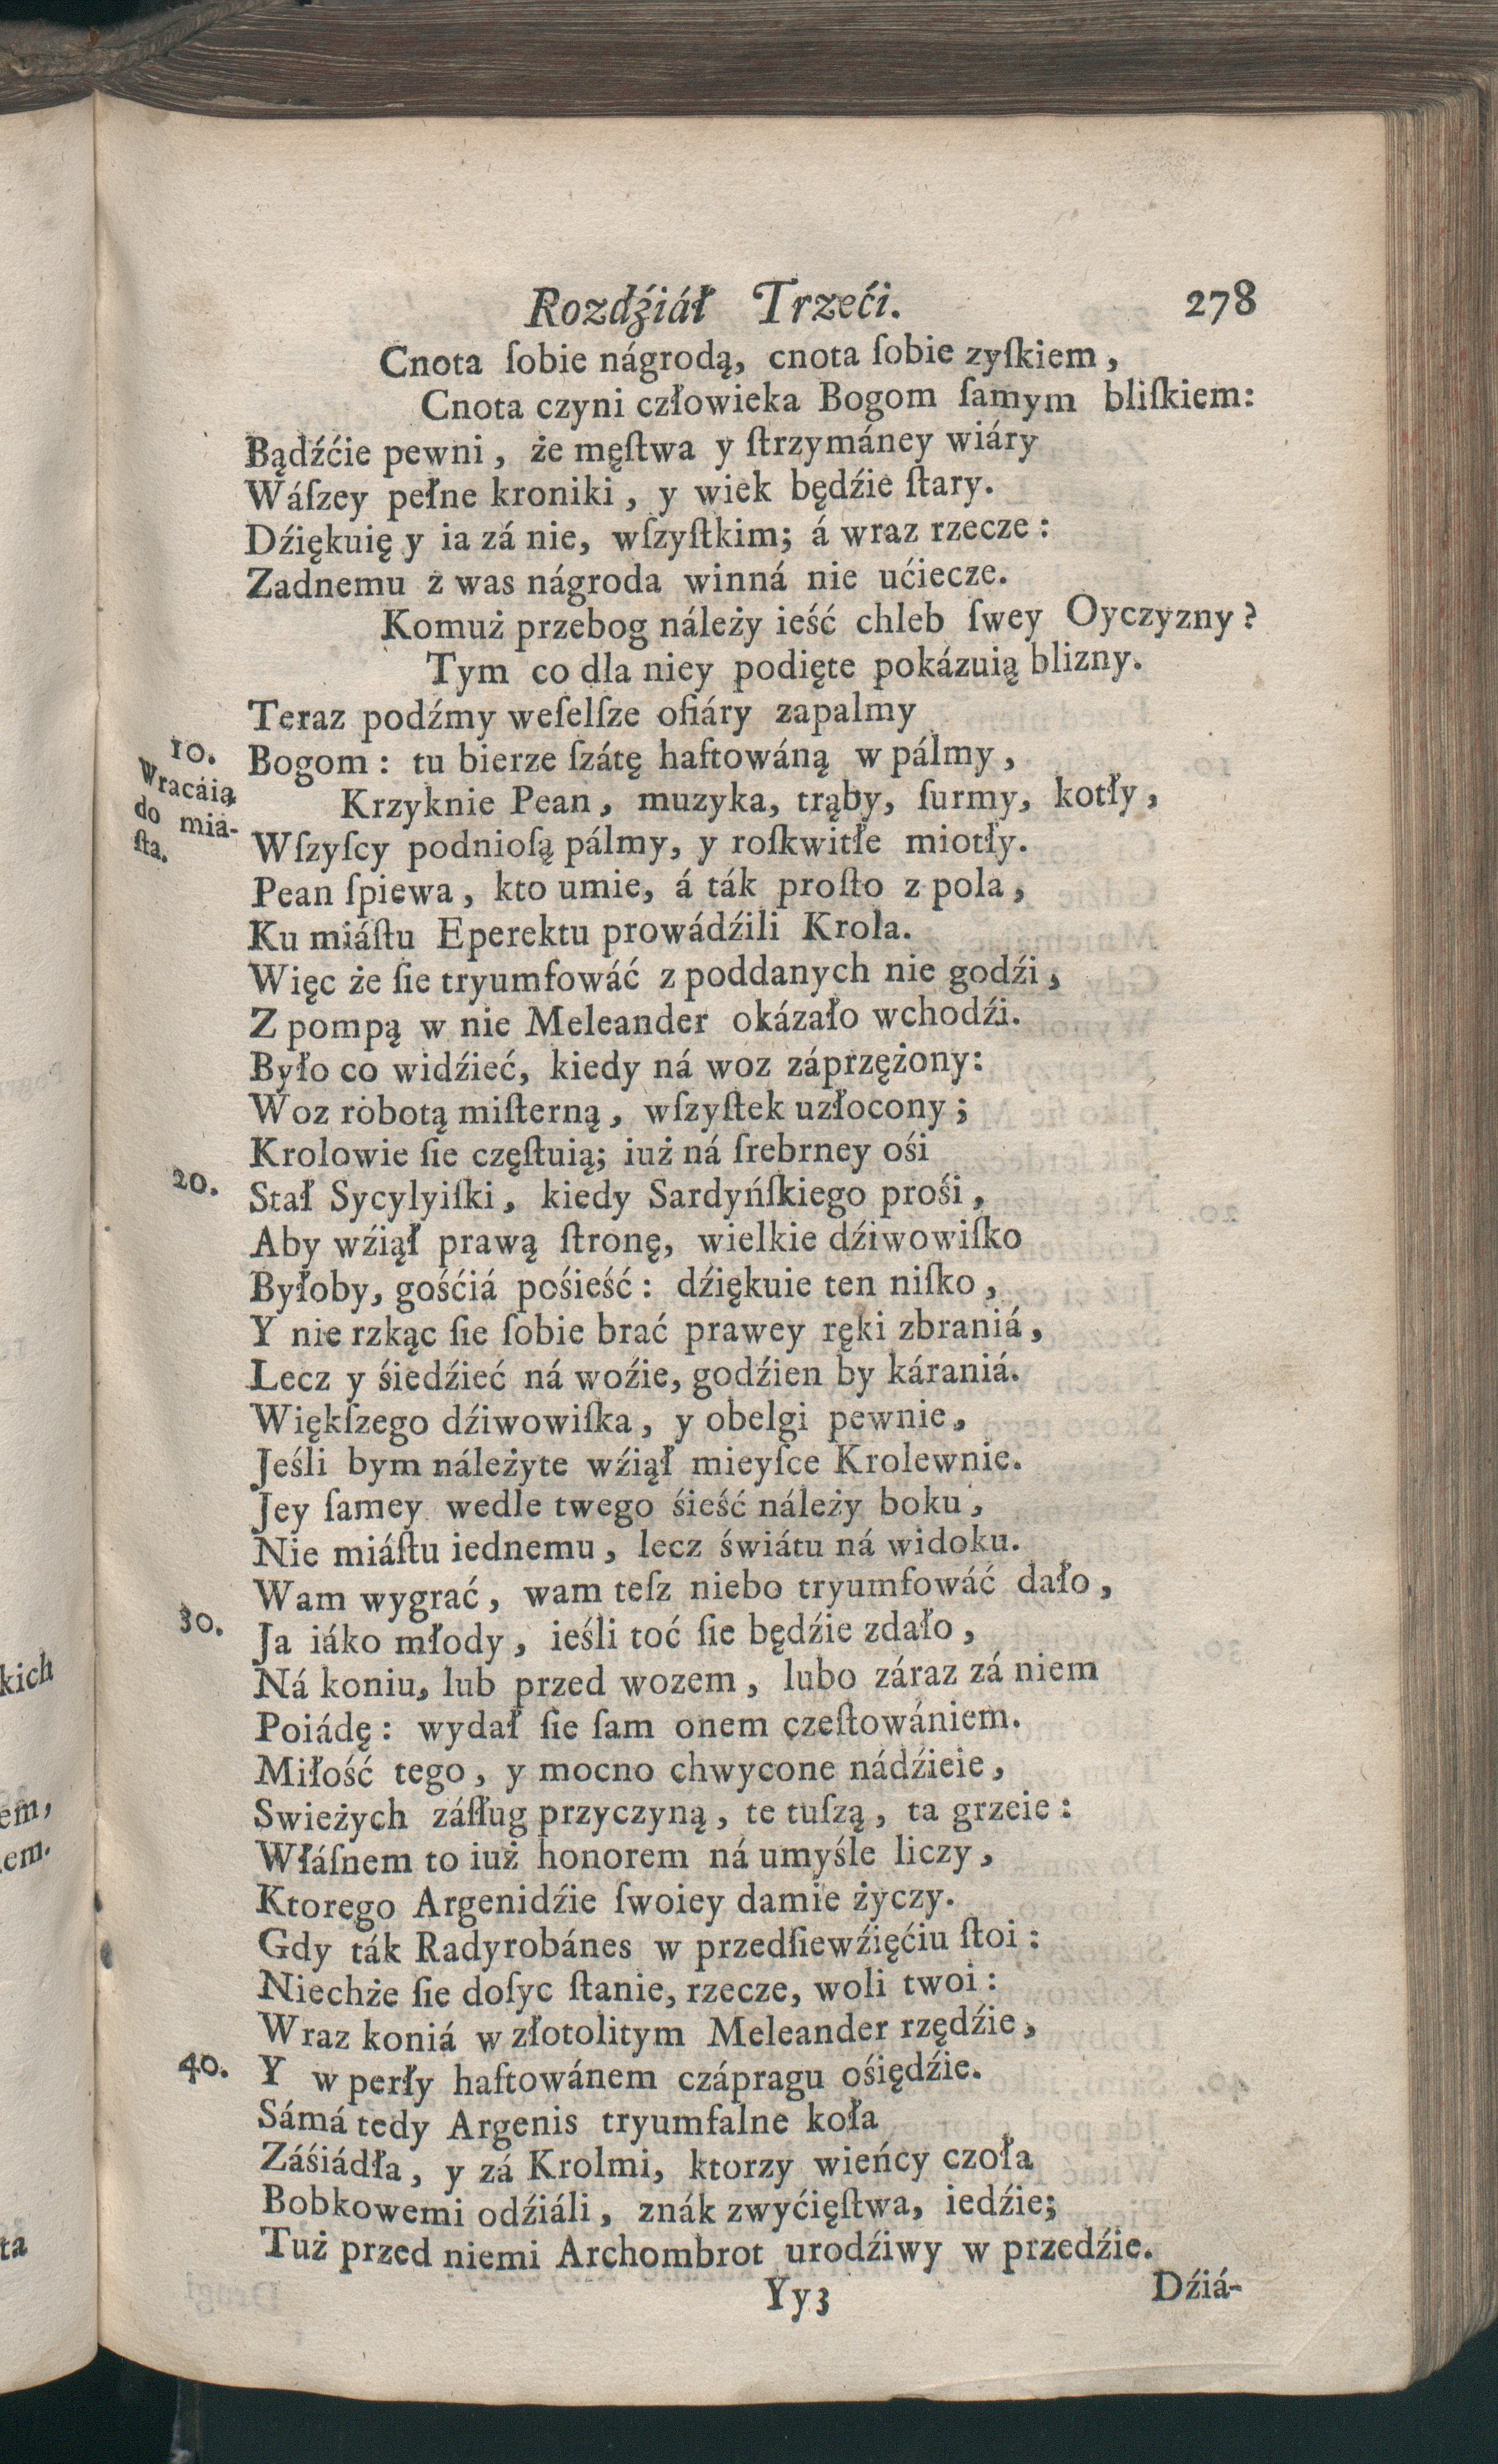 Rozdźiáł Trzeći. 278
Cnota ſobie nágrodą, cnota ſobie zyſkiem,
Cnota czyni człowieka Bogom ſamym bliſkiem:
Bądźćie pewni, że męſtwa y ſtrzymáney wiáry
Wáſzey pełne kroniki, y wiek będźie ſtary.
Dźiękuię y ia zá nie, wſzyſtkim; á wraz rzecze:
Zadnemu z was nágroda winná nie ućiecze.
Komuż przebog náleży ieść chleb ſwey Oyczyzny?
Tym co dla niey podięte pokázuią blizny.
Teraz podźmy weſelſze ofiáry zapalmy
10. Bogom: tu bierze ſzátę haftowáną w pálmy,
Wracáią do miá-ſta.
Krzyknie Pean, muzyka, trąby, ſurmy, kotły,
Wſzyſcy podnioſą pálmy, y roſkwitłe miotły.
Pean ſpiewa, kto umie, á ták proſto z pola,
Ku miáſtu Eperektu prowádźili Krola.
Więc że ſie tryumfowáć z poddanych nie godźi,
Z pompą w nie Meleander okázało wchodźi.
Było co widźieć, kiedy ná woz záprzężony:
Woz robotą miſterną, wſzyſtek uzłocony;
Krolowie ſie częſtuią; iuż ná ſrebrney ośi
20. Stał Sycylyiſki, kiedy Sardyńſkiego prośi,
Aby wźiął prawą ſtronę, wielkie dźiwowiſko
Byłoby, gośćiá pośieść: dźiękuie ten niſko,
Y nie rzkąc ſie ſobie brać prawey ręki zbraniá,
Lecz y śiedźieć ná woźie, godźien by kárania.
Więkſzego dźiwowiſka, y obelgi pewnie,
Jeśli bym náleżyte wźiął mieyſce Krolewnie.
Jey ſamey wedle twego śieść náleży boku,
Nie miáſtu iednemu, lecz świátu ná widoku.
Wam wygrać, wam teſz niebo tryumfowáć dało,
30. Ja iáko młody, ieśli toć ſie będźie zdało,
Ná koniu, lub przed wozem, lubo záraz zá niem
Poiádę: wydał ſie ſam onem czeſtowániem.
Miłość tego, y mocno chwycone nádźieie,
Swieżych záſług przyczyną, te tuſzą, ta grzeie:
Włáſnem to iuż honorem ná umyśle liczy,
Ktorego Argenidźie ſwoiey damie życzy.
Gdy ták Radyrobánes w przedſiewźięćiu ſtoi:
Niechże ſie doſyc ſtanie, rzecze, woli twoi:
Wraz koniá w złotolitym Meleander rzędźie,
40. Y w perły haftowánem czápragu ośiędźie.
Sámá tedy Argenis tryumfalne koła
Záśiádła, y zá Krolmi, ktorzy wieńcy czoła
Bobkowemi odźiáli, znák zwyćięſtwa, iedźie;
Tuż przed niemi Archombrot urodźiwy w przedźie.
Yy3 Dźiá-
kich
em,
em.
ta